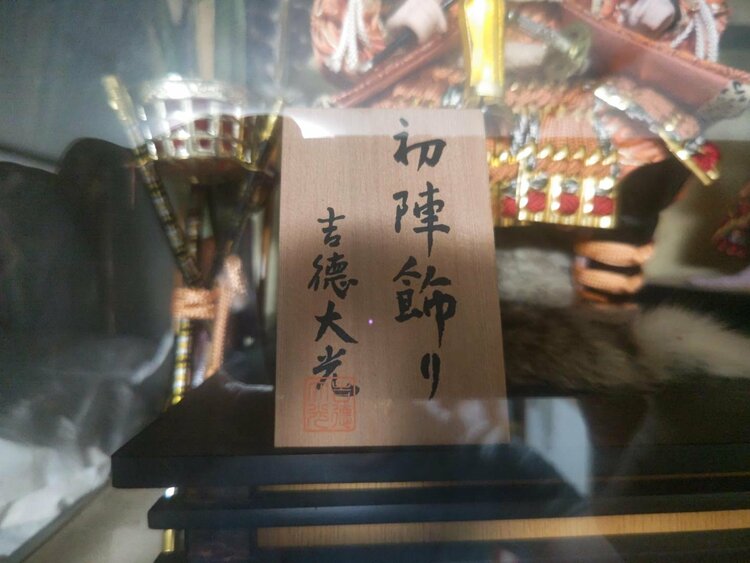 初陣飾り
吉德大光